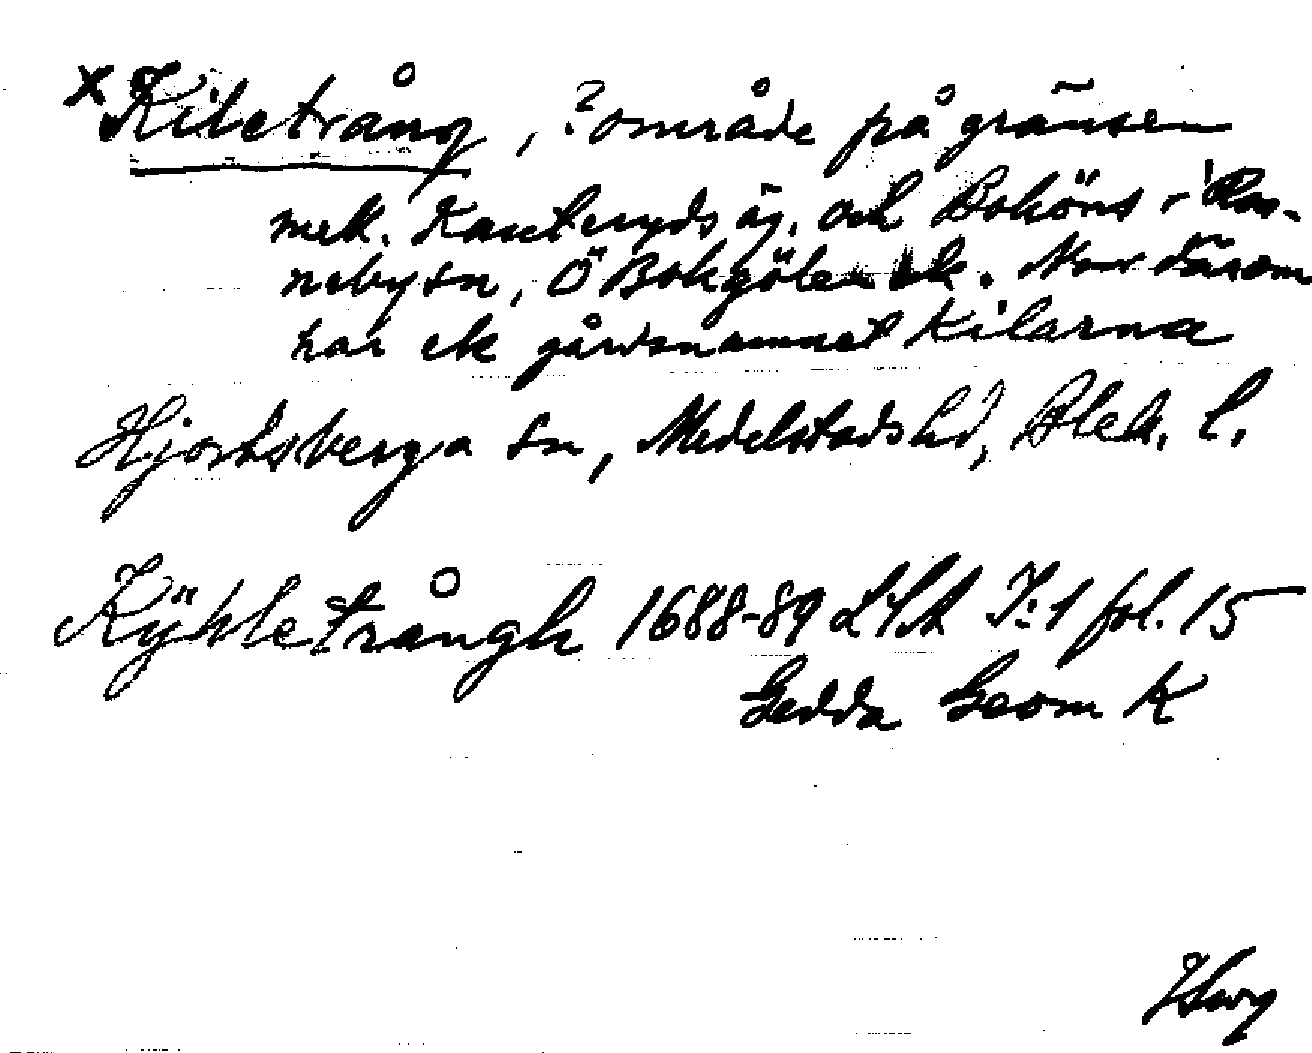 x Kiletrång, ? område på gränsen
mell. Kasteryds äg. och Boköns i Ron-
neby sn, Ö Bokgölen ek. Norr därom
har ek gårdsnamnet Kilarna
Hjortsberga sn, Medelstads hd, Blek. l.
Kÿhletrångh 1688-89 LSA I:1 fol. 15
Gedda Geom K